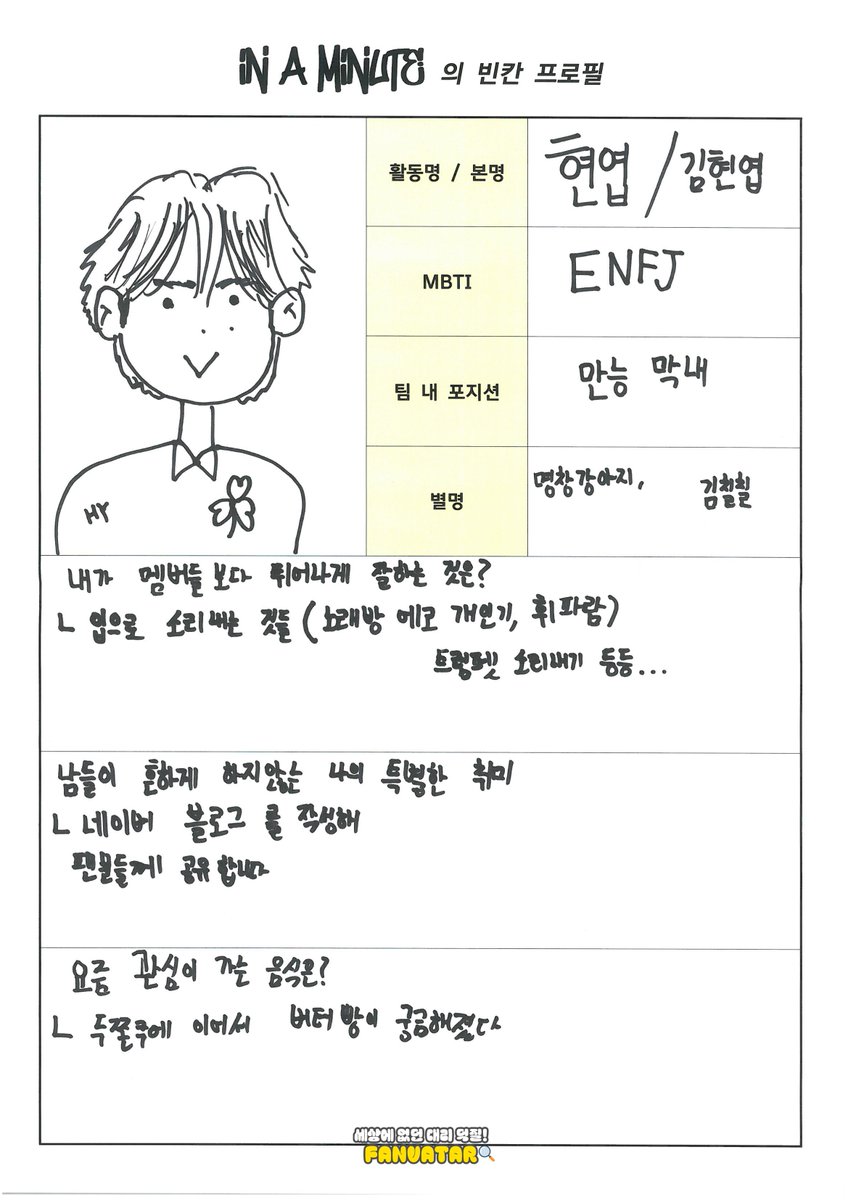 IN A MINUTE 의 빈칸 프로필
활동명 / 본명
현엽 / 김현엽
MBTI
ENFJ
팀 내 포지션
만능 막내
별명
명창강아지, 김칠칠
HY
내가 멤버들 보다 뛰어나게 잘하는 것은?
ㄴ 입으로 소리내는 것들 (노래방 에코 개인기, 휘파람)
트럼펫 소리내기 등등...
남들이 흔하게 하지않는 나의 특별한 취미
ㄴ 네이버 블로그 를 작성해
팬분들께 공유합니다
요즘 관심이 가는 음식은?
ㄴ 두쫀쿠에 이어서 버터빵이 궁금해졌다
세상에 없던 대리 덕질!
FANVATAR